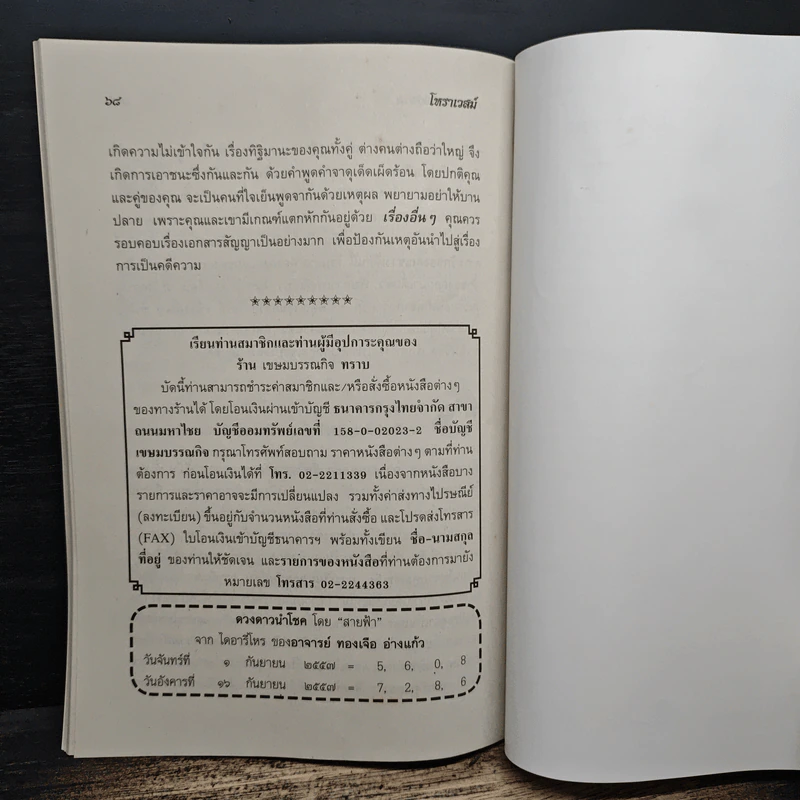 ๖๘ โหราเวสม์
เกิดความไม่เข้าใจกัน เรื่องทิฐิมานะของคุณทั้งคู่ ต่างคนต่างถือว่าใหญ่ จึง
เกิดการเอาชนะซึ่งกันและกัน ด้วยคำพูดคำจาดุเด็ดเผ็ดร้อน โดยปกติคุณ
และคู่ของคุณ จะเป็นคนที่ใจเย็นพูดจากันด้วยเหตุผล พยายามอย่าให้บาน
ปลาย เพราะคุณและเขามีเกณฑ์แตกหักกันอยู่ด้วย เรื่องอื่นๆ คุณควร
รอบคอบเรื่องเอกสารสัญญาเป็นอย่างมาก เพื่อป้องกันเหตุอันนำไปสู่เรื่อง
การเป็นคดีความ
เรียนท่านสมาชิกและท่านผู้มีอุปการะคุณของ
ร้าน เขษมบรรณกิจ ทราบ
บัดนี้ท่านสามารถชำระค่าสมาชิกและ/หรือสั่งซื้อหนังสือต่างๆ
ของทางร้านได้ โดยโอนเงินผ่านเข้าบัญชี ธนาคารกรุงไทยจำกัด สาขา
ถนนมหาไชย บัญชีออมทรัพย์เลขที่ 158-0-02023-2 ชื่อบัญชี
เขษมบรรณกิจ กรุณาโทรศัพท์สอบถาม ราคาหนังสือต่างๆ ตามที่ท่าน
ต้องการ ก่อนโอนเงินได้ที่ โทร. 02-2211339 เนื่องจากหนังสือบาง
รายการและราคาอาจจะมีการเปลี่ยนแปลง รวมทั้งค่าส่งทางไปรษณีย์
(ลงทะเบียน) ขึ้นอยู่กับจำนวนหนังสือที่ท่านสั่งซื้อ และโปรดส่งโทรสาร
(FAX) ใบโอนเงินเข้าบัญชีธนาคารฯ พร้อมทั้งเขียน ชื่อ-นามสกุล
ที่อยู่ ของท่านให้ชัดเจน และรายการของหนังสือที่ท่านต้องการมายัง
หมายเลข โทรสาร 02-2244363
ดวงดาวนำโชค โดย "สายฟ้า"
จาก ไดอารี่โหร ของอาจารย์ ทองเจือ อ่างแก้ว
วันจันทร์ที่ ๑ กันยายน ๒๕๕๗ = 5, 6, 0, 8
วันอังคารที่ ๑๖ กันยายน ๒๕๕๗ = 7, 2, 8, 6